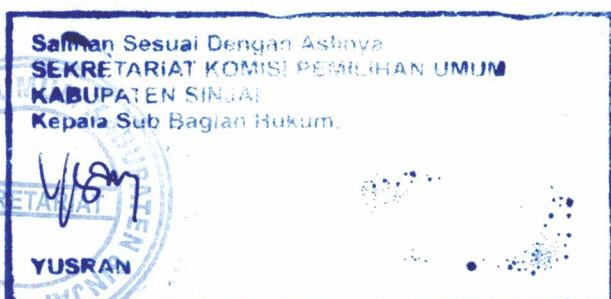 Salinan Sesuai Dengan Aslinya
SEKRETARIAT KOMISI PEMILIHAN UMUM
KABUPATEN SINJAI
Kepala Sub Bagian Hukum,
RETARIAT
BUPATEN SINJAI
YUSRAN